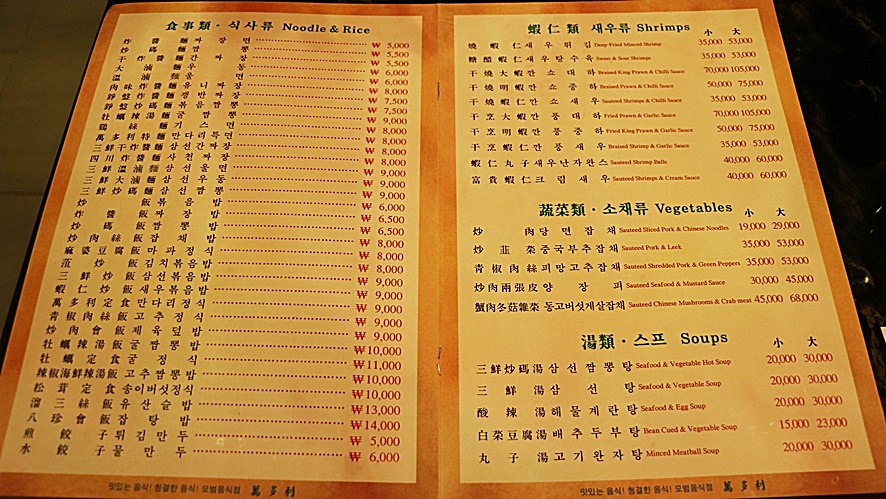 食事類 · 식사류 Noodle & Rice
炸醬麵 짜장면 ₩ 5,000
炒碼麵 짬뽕 ₩ 5,500
干炸醬麵 간짜장 ₩ 5,500
大滷麵 우동 ₩ 6,000
溫滷麵 울면 ₩ 6,000
肉味炸醬麵 유니짜장 ₩ 8,000
錚盤炸醬麵 쟁반짜장 ₩ 7,500
錚盤炒碼麵 볶음짬뽕 ₩ 7,500
牡蠣辣湯麵 굴짬뽕 ₩ 9,000
鶏絲麵 기스면 ₩ 8,000
萬多利特麵 만다리특면 ₩ 8,000
三鮮干炸醬麵 삼선간짜장 ₩ 8,000
四川炸醬麵 사천짜장 ₩ 8,000
三鮮溫滷麵 삼선울면 ₩ 9,000
三鮮大滷麵 삼선우동 ₩ 9,000
三鮮炒碼麵 삼선짬뽕 ₩ 9,000
炒飯 볶음밥 ₩ 6,000
炸醬飯 짜장밥 ₩ 6,500
炒碼飯 짬뽕밥 ₩ 6,500
炒肉絲飯 잡채밥 ₩ 8,000
麻婆豆腐飯 마파정식 ₩ 8,000
菹炒飯 김치볶음밥 ₩ 8,000
三鮮炒飯 삼선볶음밥 ₩ 9,000
蝦仁炒飯 새우볶음밥 ₩ 9,000
萬多利定食 만다리정식 ₩ 9,000
青椒肉絲飯 고추정식 ₩ 9,000
炒肉會飯 제육덮밥 ₩ 9,000
牡蠣辣湯飯 굴짬뽕밥 ₩10,000
牡蠣定食 굴정식 ₩11,000
辣椒海鮮辣湯飯 고추짬뽕밥 ₩10,000
松茸定食 송이버섯정식 ₩10,000
溜三絲飯 유산슬밥 ₩13,000
八珍會飯 잡탕밥 ₩14,000
煎餃子 튀김만두 ₩ 5,000
水餃子 물만두 ₩ 6,000
맛있는 음식! 청결한 음식! 모범음식점 萬多利
蝦仁類 새우류 Shrimps 小 大
燒蝦仁 새우튀김 Deep-Fried Minced Shrimp 35,000 53,000
糖醋蝦仁 새우탕수육 Sweet & Sour Shrimps 35,000 53,000
干燒大蝦 깐쇼대하 Braised King Prawn & Chilli Sauce 70,000 105,000
干燒明蝦 깐쇼중하 Brained Prawn & Chilli Sauce 50,000 75,000
干燒蝦仁 깐쇼새우 Sauteed Shrimps & Chilli Sauce 35,000 53,000
干烹大蝦 깐풍대하 Fried King Prawn & Garlic Sauce 70,000 105,000
干烹明蝦 깐풍중하 Fried King Prawn & Garlic Sauce 50,000 75,000
干烹蝦仁 깐풍새우 Braised Shrimp & Garlic Sauce 35,000 53,000
蝦仁丸子 새우난자완스 Sauteed Shrimp Balls 40,000 60,000
富貴蝦仁 크림새우 Sauteed Shrimps & Cream Sauce 40,000 60,000
蔬菜類 · 소채류 Vegetables 小 大
炒肉 당면잡채 Sauteed Sliced Pork & Chinese Noodles 19,000 29,000
炒韮菜 중국부추잡채 Sauteed Pork & Leek 35,000 53,000
青椒肉絲 피망고추잡채 Sauteed Shredded Pork & Green Peppers 35,000 53,000
炒肉兩張皮 양장피 Sauteed Seafood & Mustard Sauce 30,000 45,000
蟹肉冬菇雜菜 동고버섯게살잡채 Sauteed Chinese Mushrooms & Crab meat 45,000 68,000
湯類 · 스프 Soups 小 大
三鮮炒碼湯 삼선짬뽕탕 Seafood & Vegetable Hot Soup 20,000 30,000
三鮮湯 삼선탕 Seafood & Vegetable Soup 20,000 30,000
酸辣湯 해물계란탕 Seafood & Egg Soup 20,000 30,000
白菜豆腐湯 배추두부탕 Bean Cued & Vegetable Soup 15,000 23,000
丸子湯 고기완자탕 Minced Meatball Soup 20,000 30,000
맛있는 음식! 청결한 음식! 모범음식점 萬多利